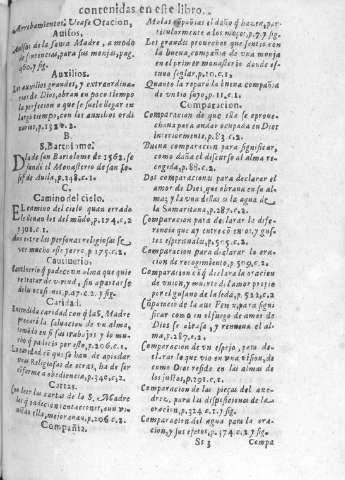 contenidas en este libro.
Arrobamientos. Vease Oracion,
Auisos.
Auisos de la santa Madre, a modo
de sentencias, para sus monjas, pag.
Auxilios.
Los auxilios grandes, y extraordina-
rios de Dios, obran en poco tiempo
la perfecion a que se suele llegar en
largo tiempo, con los auxilios ordi
narios, p.132.c.2.
B.
S. Bartolome.
Dia de san Bartolome de 1562. se
fundò el Monasterio de san Io-
sef de Auila, p.248.c.1.
C,
Camino del cielo.
El camino del cielo quan errado
le lleuan los del mũdo, p.174.c.2
y 308.c.1.
aun entre las personas religiosas se
yerra mucho este p.175.c.2.
Cautiuerio.
Cautiuerio q̃ padece vn alma que quie
re tratar de virtud, sin apartarse
de la ocasion. p.47.c.2. y sig.
Caridad.
Encendida caridad con q̃ la S. Madre
procurò la saluacion de vn alma,
q̃ padecio por esto, p.206.c.1.
La caridad en que se han de apiadar
las Religiosas de otras, ha de ser
conforme a obediencia, p.540.c.2.
Cartas.
Con leer las cartas de la S. Madre
los q̃ padecian tentaciones, aun vi-
uiendo ella, mejorauan, p.206.c.2.
Compañia.
Malas cõpañias el daño q̃ hazen, par-
ticularmente a los moços, p.7.c.1. y sig.
Los grandes prouechos que sentio con
la buena compañia de vna monja
en el primer monasterio donde es-
tuuo seglar, p.10.c.1.
Quanto la reparò la buena compañia
de vn tio suyo, p.11.c.1.
Comparacion.
Comparacion de que ella se aproue-
chaua para andar ocupada en Dios
interiormente, p.83.c.2.
Buena comparacion para significar,
como daña el discurso al alma re-
cogida, p.88.c.2.
Dos comparaciones para declarar el
amor de Dios, que obran en su al-
mas y la vna dellas es la agua de
la Samaritana, p.287.c.2.
Comparacion para declarar la dife-
rencia que ay entre contentos, y gus-
tos espirituales, p.505.c.2.
Comparacion para declarar la ora-
cion de recogimiento, p.509.c.2.
Comparacion cõ q̃ declara la oracion
de vnion, y muerte del amor propio
por el gusano de la seda, p.512.c.2
Cõparacion de la aue Fenix, para sig-
nificar como en el fuego de amor de
Dios se abrasa, y renueua el al-
ma, p.287.c.2.
Comparacion de vn espejo, para de-
clarar lo que vio en vna vision, de
como Dios reside en las almas de
los justos, p.291.c.1.
Comparacion de las pieças del axe-
drez, para las disposiciones de la
oracion, p.324.c.1. y sig.
Comparacion del agua para la ora-
cion, y sus efetos, p.374.c.2. y sig.
Sf 3
Compa